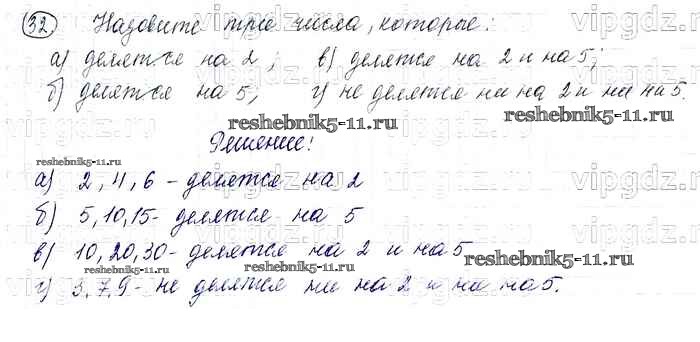 32 Назовите три числа, которые:
а) делятся на 2; в) делятся на 2 и на 5;
б) делятся на 5; г) не делятся ни на 2 и ни на 5.
reshebnik5-11.ru
reshebnik5-11.ru
Решение:
reshebnik5-11.ru
а) 2, 4, 6 - делятся на 2
б) 5, 10, 15 - делятся на 5
в) 10, 20, 30 - делятся на 2 и на 5
reshebnik5-11.ru
reshebnik5-11.ru
г) 3, 7, 9 - не делятся ни на 2 и ни на 5.